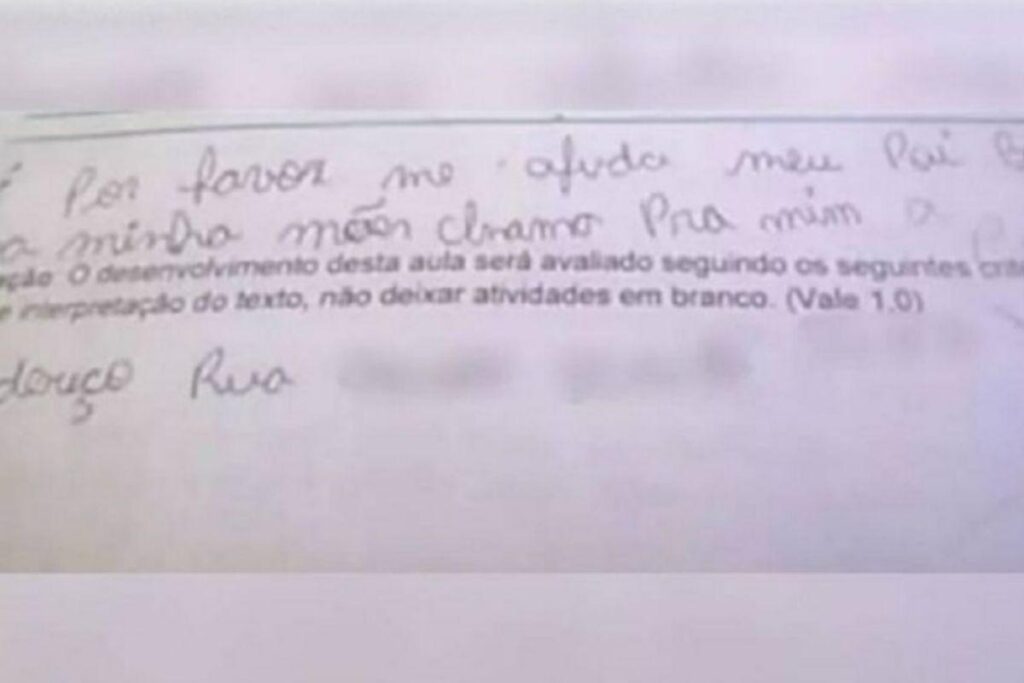 Por favor me ajuda meu Pai
a minha mãen chramo Pra mim a
ação O desenvolvimento desta aula será avaliado seguindo os seguintes crité
e interpretação do texto, não deixar atividades em branco. (Vale 1.0)
douço Rua